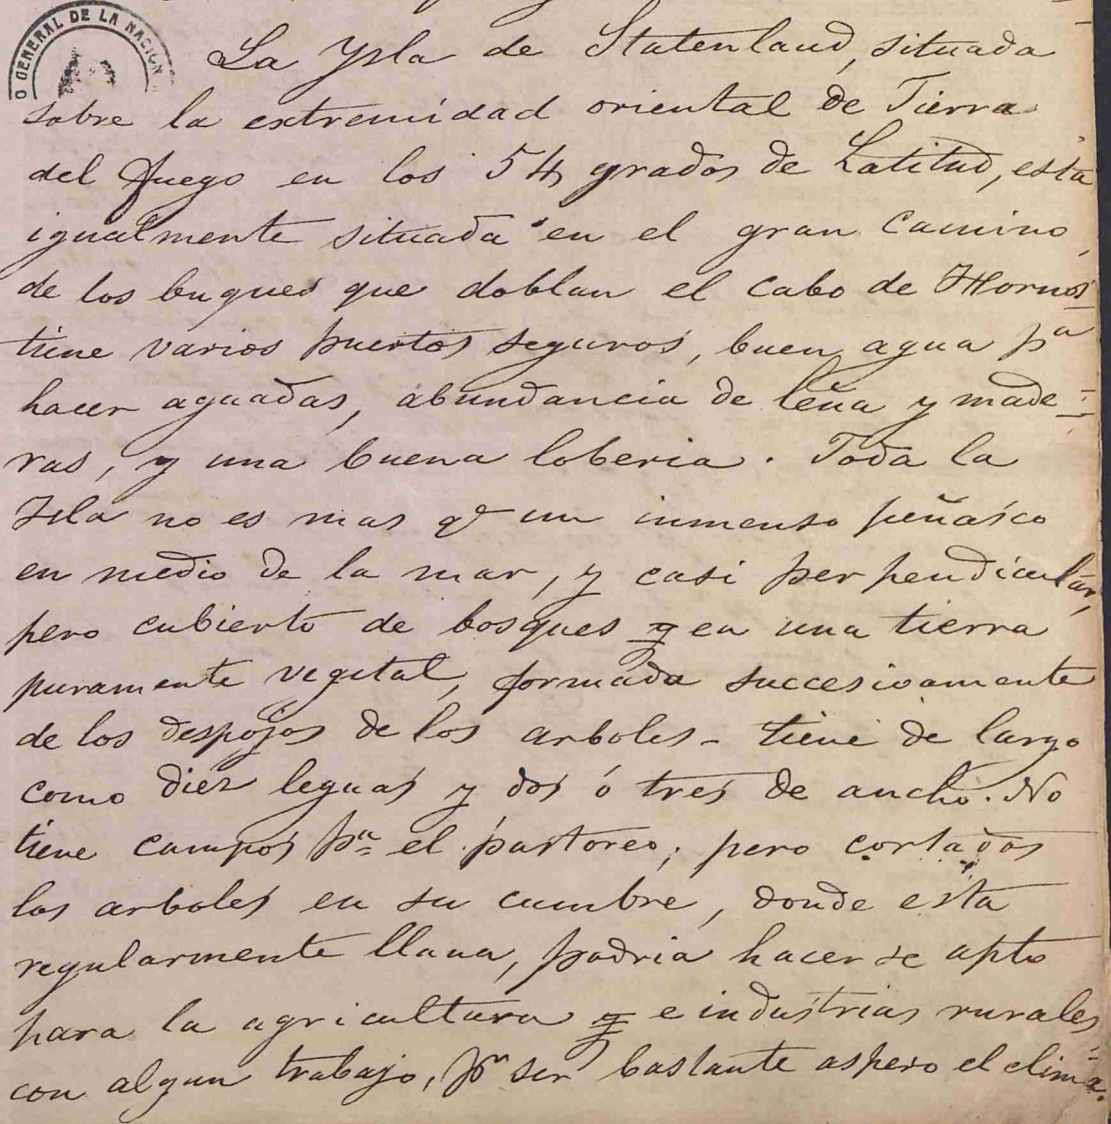 O GENERAL DE LA NACION
La Ysla de Statenland, situada
sobre la extremidad oriental de Tierra
del fuego en los 54 grados de Latitud, está
igualmente situada en el gran camino
de los buques que doblan el cabo de Hornos
tiene varios puertos seguros, buen agua pa
hacer aguadas, abundancia de leña y made=
ras, y una buena loberia. Toda la
Isla no es mas qe un inmenso peñasco
en medio de la mar, y casi perpendicular,
pero cubierto de bosques y en una tierra
puramente vegetal, formada succesivamente
de los despojos de los arboles - tiene de largo
como diez leguas y dos ó tres de ancho. No
tiene campos pa el pastoreo; pero cortados
los arboles en su cumbre, donde está
regularmente llana, podria hacerse apto
para la agricultura y e industrias rurales
con algun trabajo, pr ser bastante aspero el clima.